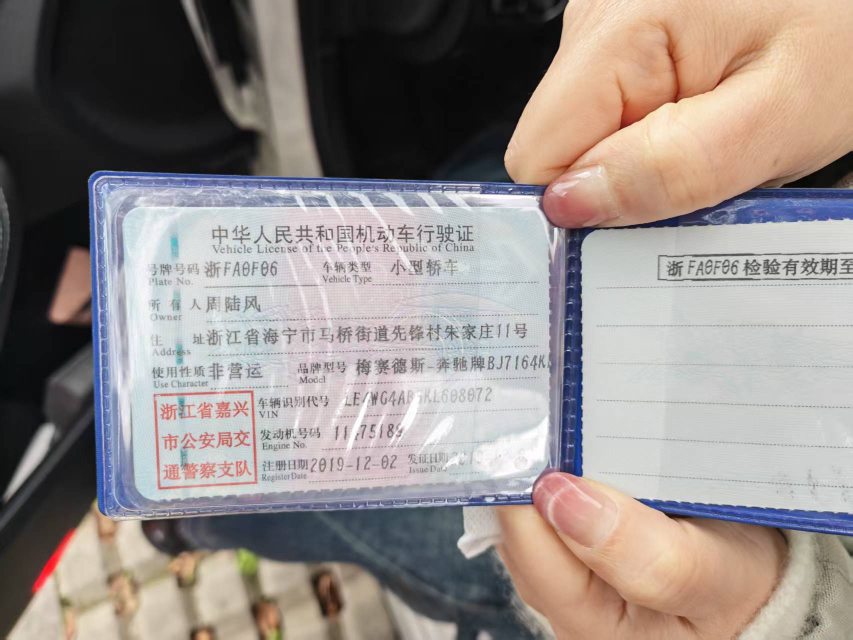 中华人民共和国机动车行驶证
Vehicle License of the People's Republic of China
号牌号码 浙FA0F06 车辆类型 小型轿车
Plate No. Vehicle Type
所有人 周陆风
Owner
住址 浙江省海宁市马桥街道先锋村朱家庄11号
Address
使用性质 非营运 品牌型号 梅赛德斯-奔驰牌BJ7164K
Use Character Model
浙江省嘉兴
市公安局交
通警察支队
车辆识别代号
VIN
发动机号码
Engine No.
注册日期 2019-12-02 发证日期
Register Date Issue Date
浙FA0F06检验有效期至